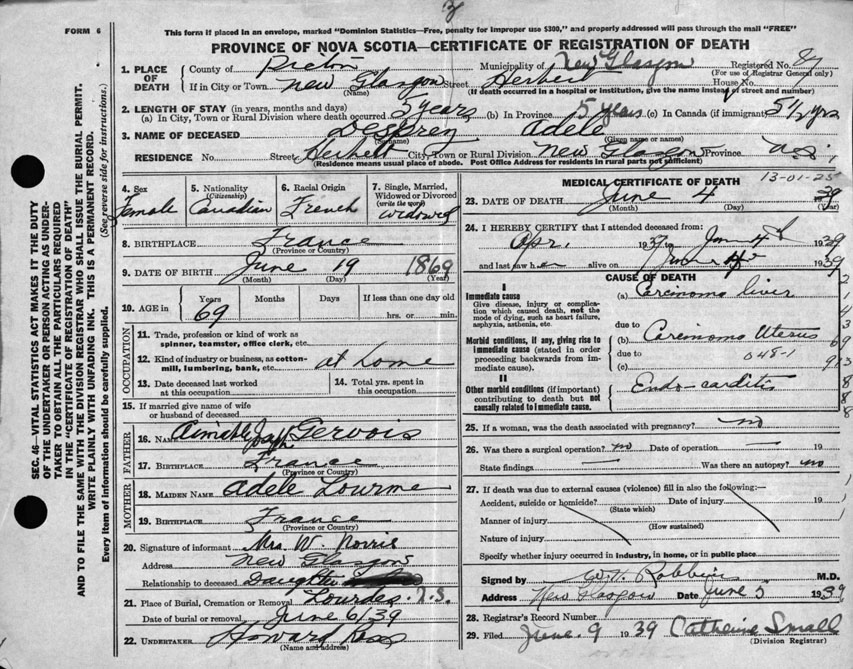 FORM 6
This form if placed in an envelope, marked "Dominion Statistics—Free, penalty for improper use $300," and properly addressed will pass through the mail "FREE"
PROVINCE OF NOVA SCOTIA—CERTIFICATE OF REGISTRATION OF DEATH
1. PLACE OF DEATH County of Pictou Municipality of New Glasgow Registered No.
(For use of Registrar General only)
If in City or Town New Glasgow Street Herbert House No.
(Name) (If death occurred in a hospital or institution, give the name instead of street and number)
2. LENGTH OF STAY (in years, months and days)
(a) In City, Town or Rural Division where death occurred 5 years (b) In Province 5 years (c) In Canada (if immigrant) 5½ yrs
3. NAME OF DECEASED Desprey Adele
(Surname) (Given name or names)
RESIDENCE No. Street Herbert City, Town or Rural Division New Glasgow Province N.S.
(Residence means usual place of abode. Post Office Address for residents in rural parts not sufficient)
4. Sex Female
5. Nationality (Citizenship) Canadian
6. Racial Origin French
7. Single, Married, Widowed or Divorced (write the word) Widowed
8. BIRTHPLACE France
(Province or Country)
9. DATE OF BIRTH June 19 1869
(Month) (Day) (Year)
10. AGE Years Months Days If less than one day old
69 hrs. or min.
OCCUPATION
11. Trade, profession or kind of work as spinner, teamster, office clerk, etc.
12. Kind of industry or business, as cotton-mill, lumbering, bank, etc. at home
13. Date deceased last worked at this occupation
14. Total yrs. spent in this occupation
15. If married give name of wife or husband of deceased
FATHER
16. NAME Gervois
17. BIRTHPLACE France
(Province or Country)
MOTHER
18. MAIDEN NAME Adele Lourme
19. BIRTHPLACE France
(Province or Country)
20. Signature of informant Mrs W. Norris
Address New Glasgow
Relationship to deceased Daughter
21. Place of Burial, Cremation or Removal Lourdes N.S.
Date of burial or removal June 6/39
22. UNDERTAKER Howard Ross
(Name and address)
MEDICAL CERTIFICATE OF DEATH 13-01-25
23. DATE OF DEATH June 4 39
(Month) (Day) (Year)
24. I HEREBY CERTIFY that I attended deceased from:
Apr. 1937 to 4th 1939
and last saw her alive on 1939
CAUSE OF DEATH
I
Immediate cause
Give disease, injury or complication which caused death, not the mode of dying, such as heart failure, asphyxia, asthenia, etc.
(a) Carcinoma liver
due to
Morbid conditions, if any, giving rise to immediate cause (stated in order proceeding backwards from immediate cause).
(b) Carcinoma Uterus
due to 048-1
(c)
II
Other morbid conditions (if important) contributing to death but not causally related to immediate cause.
Endo-carditis
25. If a woman, was the death associated with pregnancy? no
26. Was there a surgical operation? no Date of operation — 19
State findings — Was there an autopsy? no
27. If death was due to external causes (violence) fill in also the following:—
Accident, suicide or homicide? Date of injury 19
(State which)
Manner of injury
(How sustained)
Nature of injury
Specify whether injury occurred in industry, in home, or in public place
Signed by M.D.
Address New Glasgow Date June 5 1939
28. Registrar's Record Number
29. Filed June 9 1939 Catherine Small
(Division Registrar)
SEC. 46—VITAL STATISTICS ACT MAKES IT THE DUTY
OF THE UNDERTAKER OR PERSON ACTING AS UNDERTAKER TO OBTAIN ALL THE PARTICULARS REQUIRED
IN THE "CERTIFICATE OF REGISTRATION OF DEATH"
AND TO FILE THE SAME WITH THE DIVISION REGISTRAR WHO SHALL ISSUE THE BURIAL PERMIT.
WRITE PLAINLY WITH UNFADING INK. THIS IS A PERMANENT RECORD.
Every item of information should be carefully supplied. (See reverse side for instructions.)